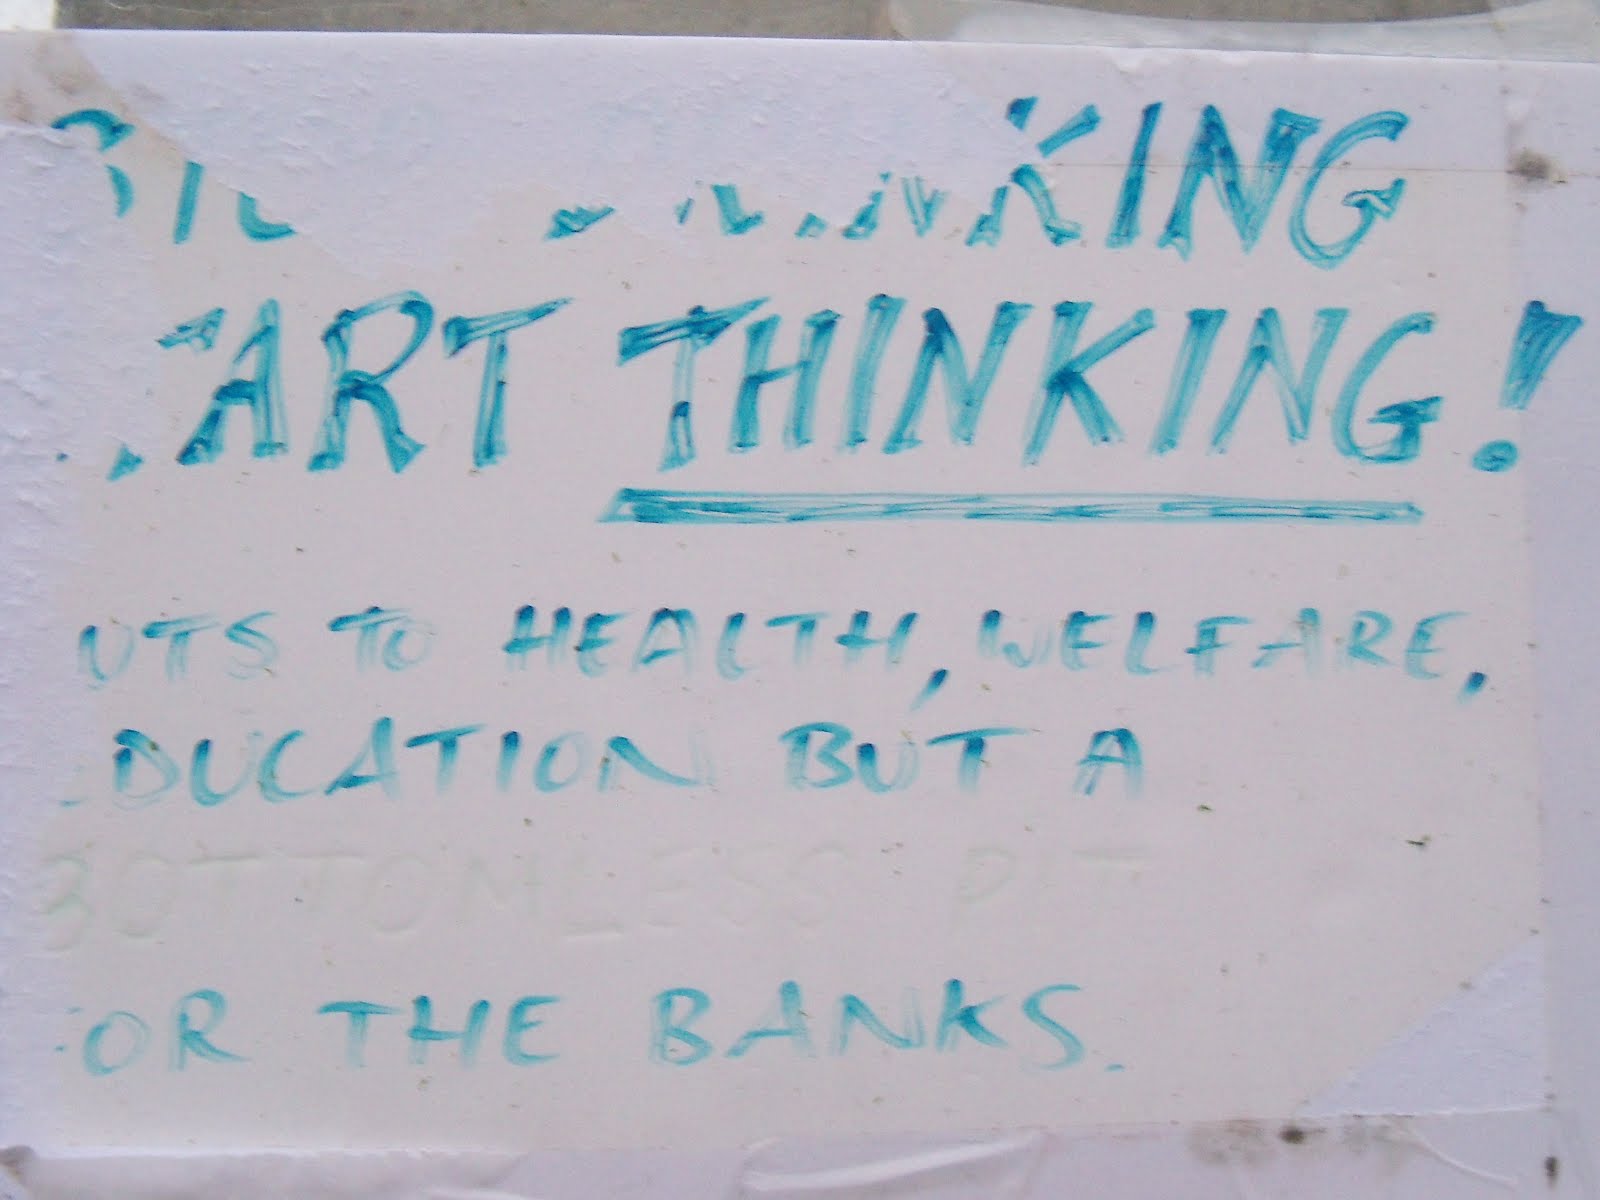 KING
ART THINKING!
UTS TO HEALTH, WELFARE,
EDUCATION BUT A
BOTTOMLESS PIT
OR THE BANKS.